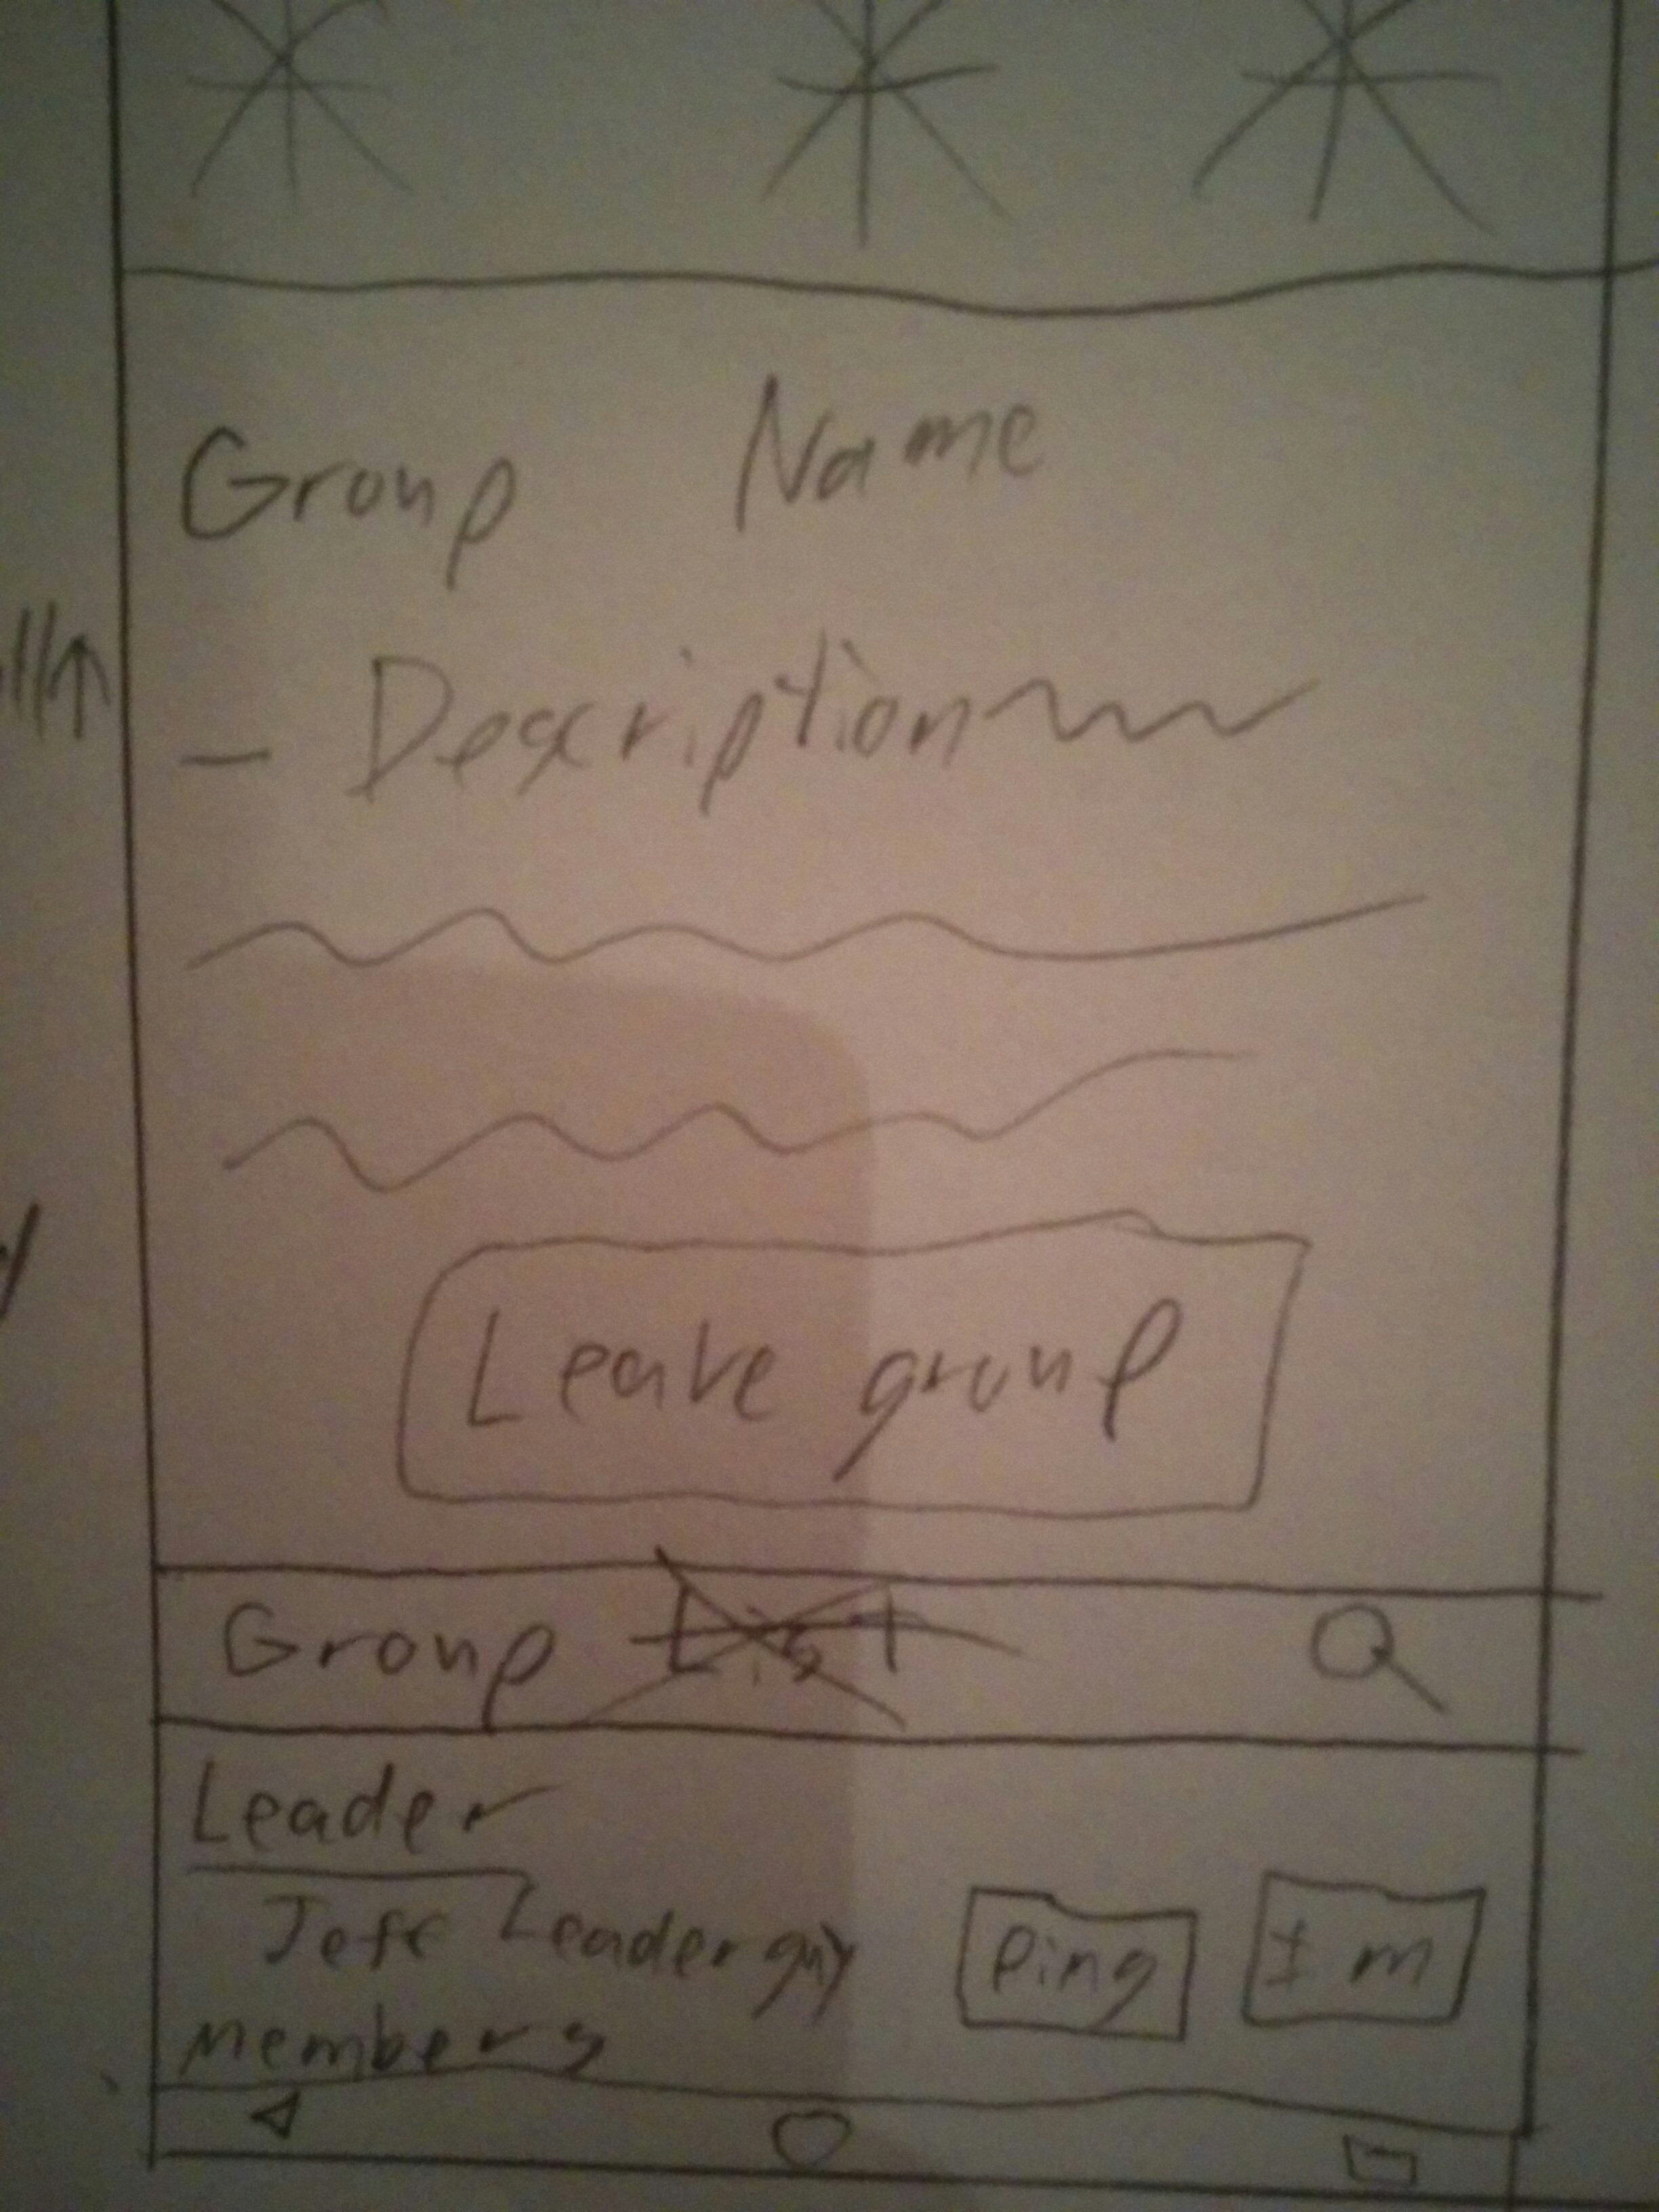 Group Name
- Description
Leave group
Group List
Leader
Jeff Leaderguy Ping Im
Members